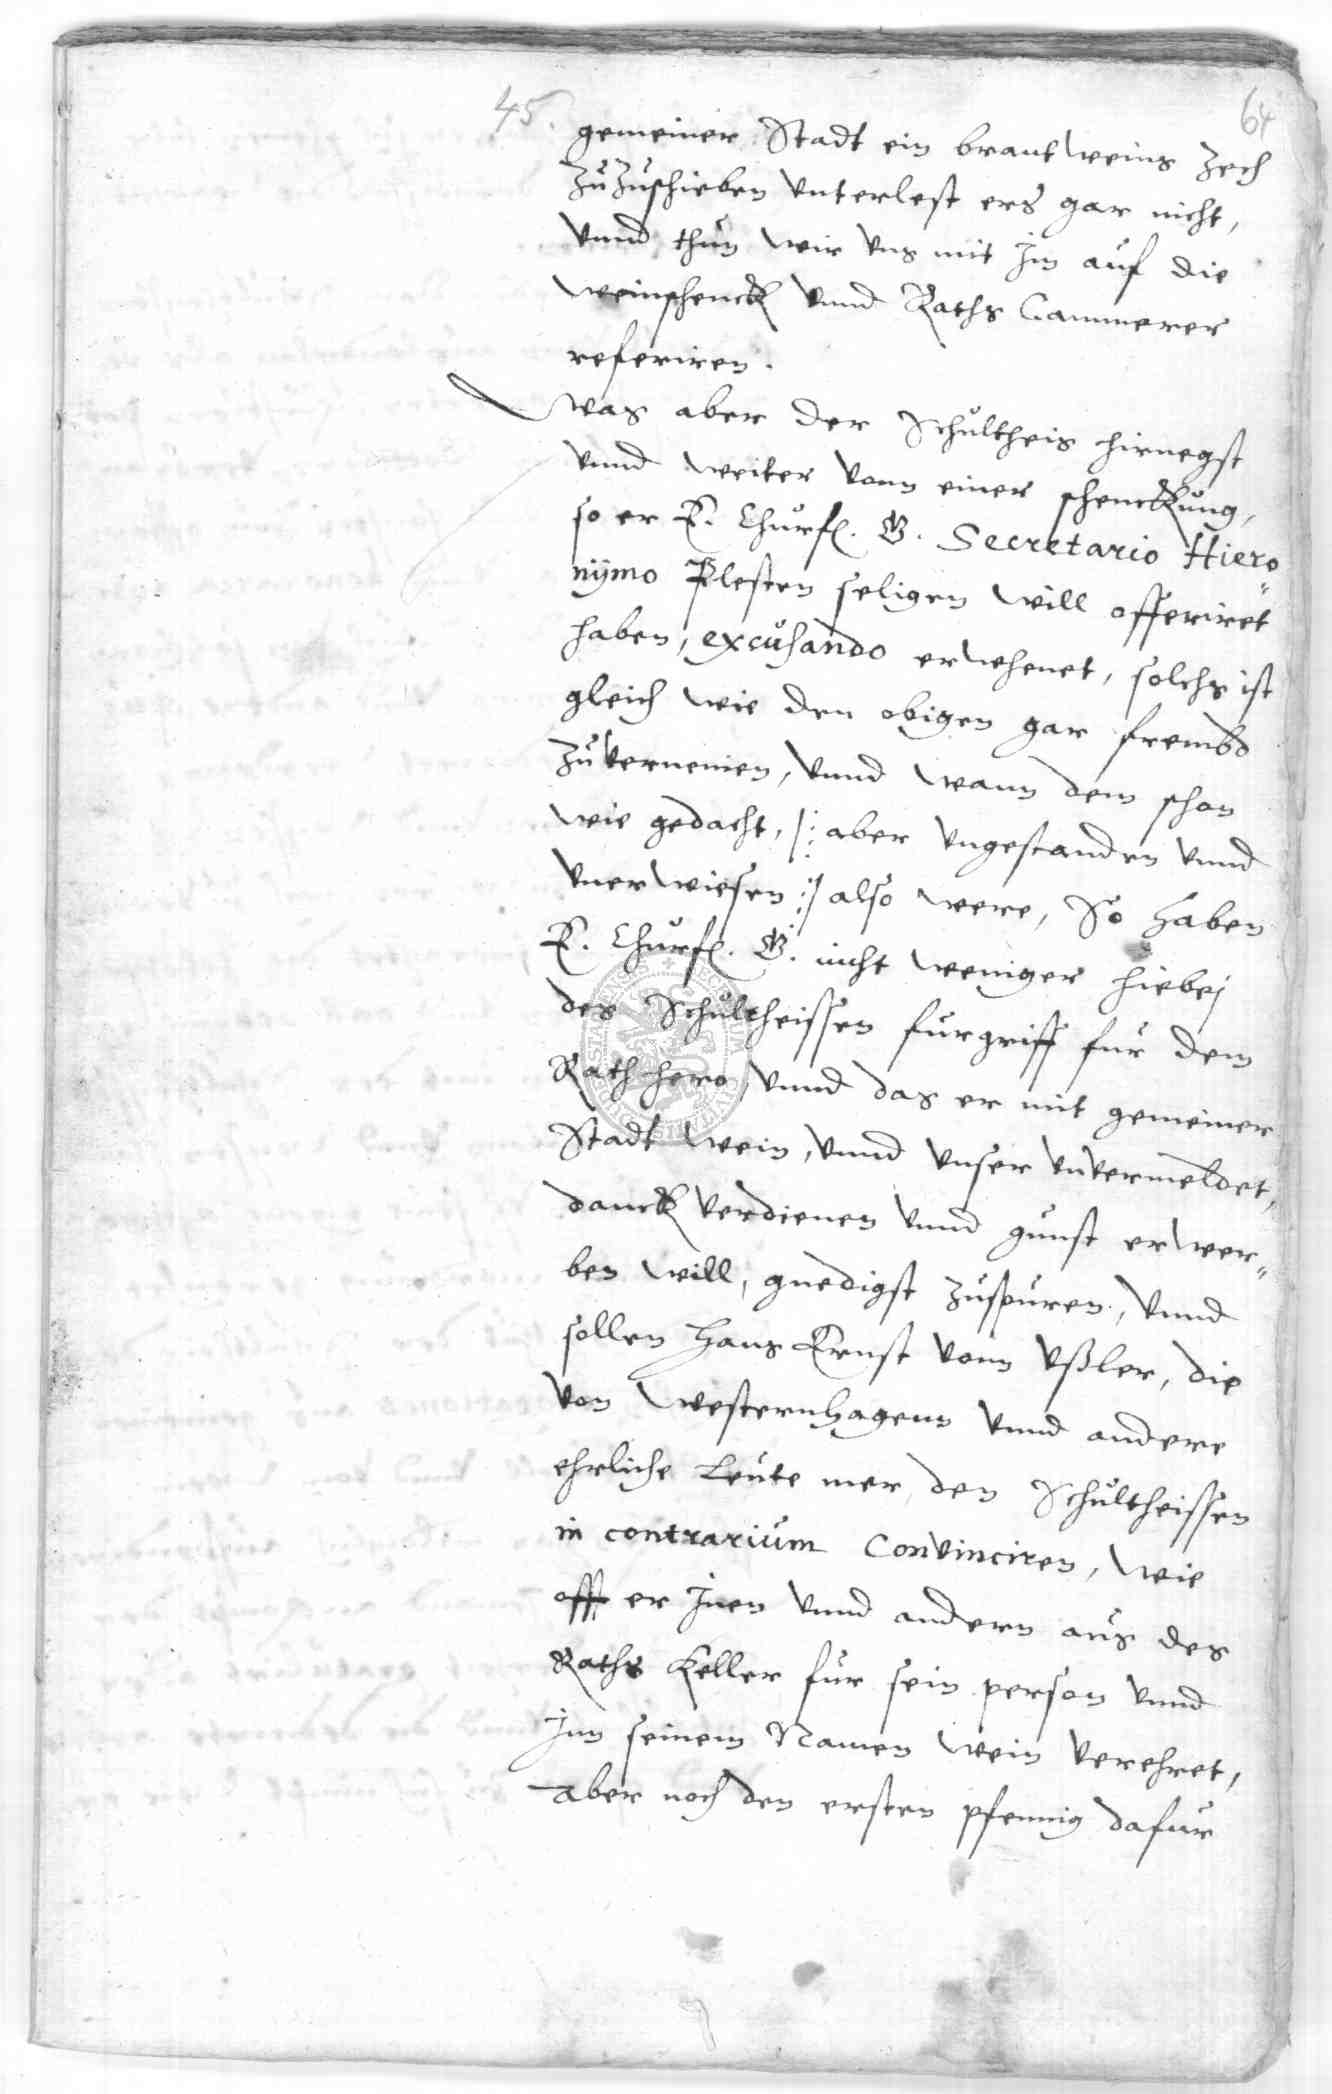 45. 64
gemeiner Stadt ein brantweins Zech
Zuzuschieben vnterlest ers gar nicht,
vnnd thun wir vns mit Jm auf die
weinschenck vnnd Raths Cammerer
referiren.
was aber der Schultheis hirnegst
vnnd weiter vonn einer schenckung,
so er E. Churf. G. Secretario Hiero"
nÿmo Plesten seligen will offeriret
haben, excusando erwehenet, solchs ist
gleich wie den obigen gar frembd
Zuuernemen, vnnd wann dem schon
wie gedacht, |: aber vngestanden vnnd
vnerwiesen :| also were, So haben
E. Churf. G. nicht weniger hiebej
des Schultheissen furgriff fur dem
Rath hero, vnnd das er mit gemeiner
Stadt wein, vnnd vnser vnvermeldet,
danck verdienen vnnd gunst erwer"
ben will, gnedigst Zuspuren, vnnd
sollen Hans Ernst vonn Vßler, die
von Westernhagenn vnnd andere
ehrliche Leute mer, den Schultheissen
in contrarium Convinciren, wie
offt er Jnen vnnd andern aus des
Raths Keller fur sein person vnnd
Jnn seinem Namen wein verehret,
aber noch den ersten pfennig dafur